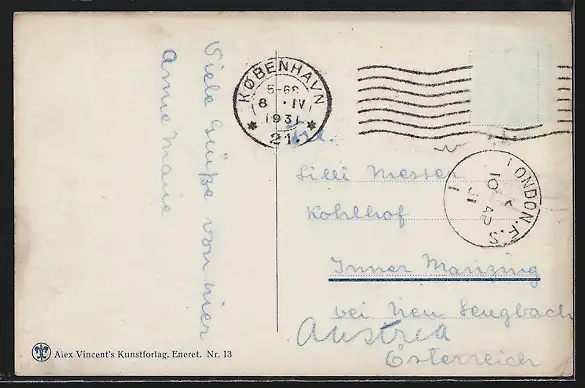 Viele Grüße von hier
Anne Marie
KØBENHAVN
5-6E
8 .IV
1931
* 21 *
Frl.
Lilli Messer
Kohlhof
Inner Manzing
bei Neu Lengbach
Austrea
Österreich
LONDON. F.S.
10 AP
31
Alex Vincent's Kunstforlag. Eneret. Nr. 13